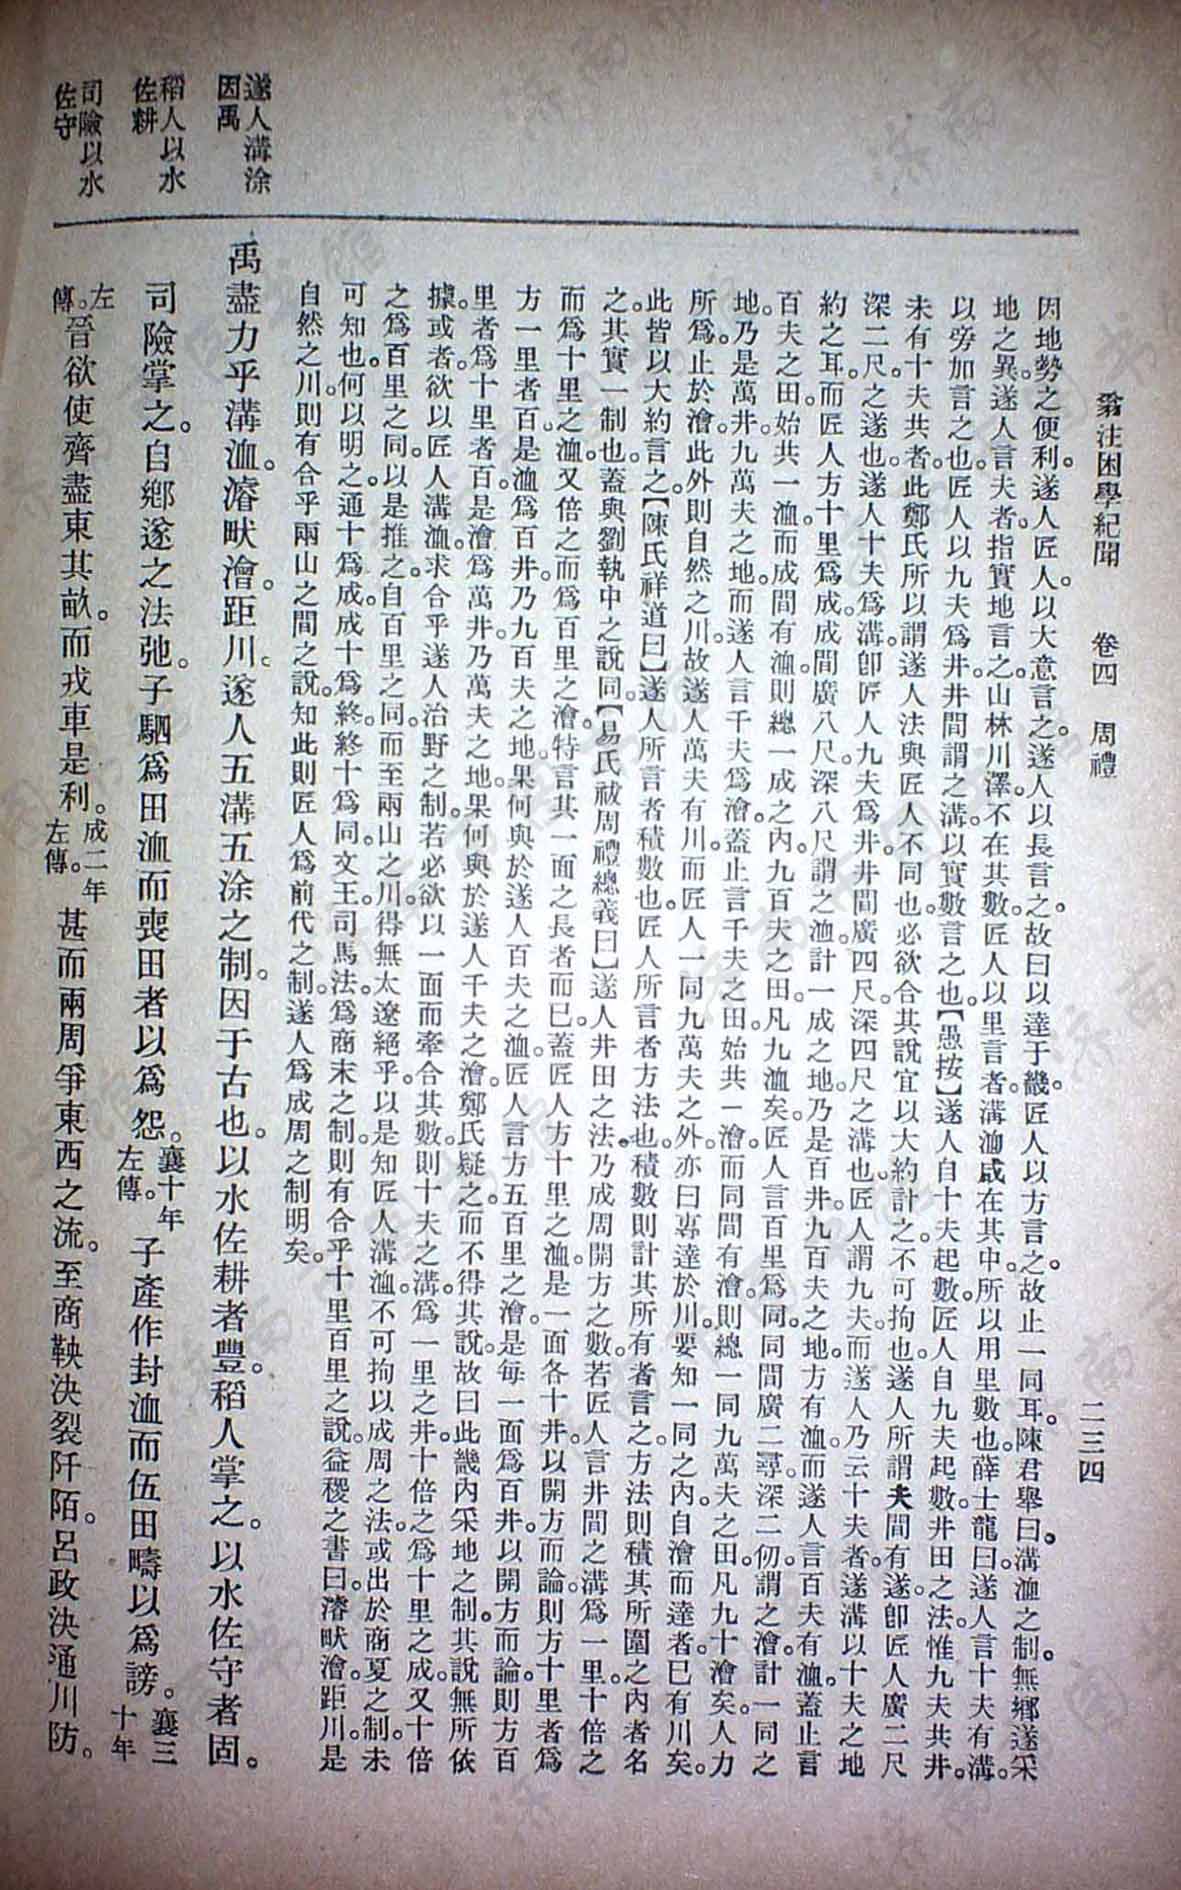 翁注困學紀聞　卷四　周禮　二三四
因地勢之便利。遂人匠人。以大意言之。遂人以長言之。故曰以達于畿。匠人以方言之。故止一同耳。陳君舉曰。溝洫之制。無鄉遂采
地之異。遂人言夫者。指實地言之。山林川澤。不在其數。匠人以里言者。溝洫咸在其中。所以用里數也。薛士龍曰。遂人言十夫有溝。
以旁加言之也。匠人以九夫爲井。井間謂之溝。以實數言之也。【愚按】遂人自十夫起數。匠人自九夫起數。井田之法。惟九夫共井。
未有十夫共者。此鄭氏所以謂遂人法與匠人不同也。必欲合其說。宜以大約計之。不可拘也。遂人所謂夫間有遂。卽匠人廣二尺
深二尺。之遂也。遂人十夫爲溝。卽匠人九夫爲井。井間廣四尺。深四尺之溝也。匠人謂九夫。而遂人乃云十夫者。遂溝以十夫之地
約之耳。而匠人方十里爲成。成間廣八尺。深八尺。謂之洫。計一成之地。乃是百井。九百夫之地。方有洫。而遂人言百夫有洫。蓋止言
百夫之田。始共一洫。而成間有洫。則總一成之內。九百夫之田。凡九洫矣。匠人言百里爲同。同間廣二尋。深二仞。謂之澮。計一同之
地。乃是萬井。九萬夫之地。而遂人言千夫爲澮。蓋止言千夫之田。始共一澮。而同間有澮。則總一同九萬夫之田。凡九十澮矣。人力
所爲。止於澮。此外則自然之川。故遂人萬夫有川。而匠人一同九萬夫之外。亦曰專達於川。要知一同之內。自澮而達者。已有川矣。
此皆以大約言之。【陳氏祥道曰】遂人所言者積數也。匠人所言者方法也。積數則計其所有者言之。方法則積其所圍之內者名
之。其實一制也。蓋與劉執中之說同。【易氏祓周禮總義曰】遂人井田之法。乃成周開方之數。若匠人言井間之溝爲一里。十倍之
而爲十里之洫。又倍之而爲百里之澮。特言其一面之長者而已。蓋匠人方十里之洫。是一面各十井。以開方而論。則方十里者爲
方一里者百。是洫爲百井。乃九百夫之地。果何與於遂人百夫之洫。匠人言方五百里之澮。是每一面爲百井。以開方而論。則方百
里者爲十里者百。是澮爲萬井。乃萬夫之地。果何與於遂人千夫之澮。鄭氏疑之。而不得其說。故曰此畿內采地之制。其說無所依
據。或者欲以匠人溝洫。求合乎遂人治野之制。若必欲以一面而牽合其數。則十夫之溝。爲一里之井。十倍之爲十里之成。又十倍
之爲百里之同。以是推之。自百里之同。而至兩山之川。得無太遼絕乎。以是知匠人溝洫。不可拘以成周之法。或出於商夏之制。未
可知也。何以明之。通十爲成。成十爲終。終十爲同。文王司馬法。爲商末之制。則有合乎十里百里之說。益稷之書曰。濬畎澮。距川。是
自然之川。則有合乎兩山之間之說。知此則匠人爲前代之制。遂人爲成周之制明矣。
遂人溝涂
因禹
禹盡力乎溝洫。濬畎澮。距川。遂人五溝五涂之制。因于古也。以水佐耕者豐。稻人掌之。以水佐守者固。
稻人以水
佐耕
司險掌之。自鄉遂之法弛。子駟爲田洫。而喪田者以爲怨。襄十年左傳。子產作封洫。而伍田疇以爲謗。襄三十年
司險以水
佐守
左傳。晉欲使齊盡東其畝。而戎車是利。成二年左傳。甚而兩周爭東西之流。至商鞅決裂阡陌。呂政決通川防。